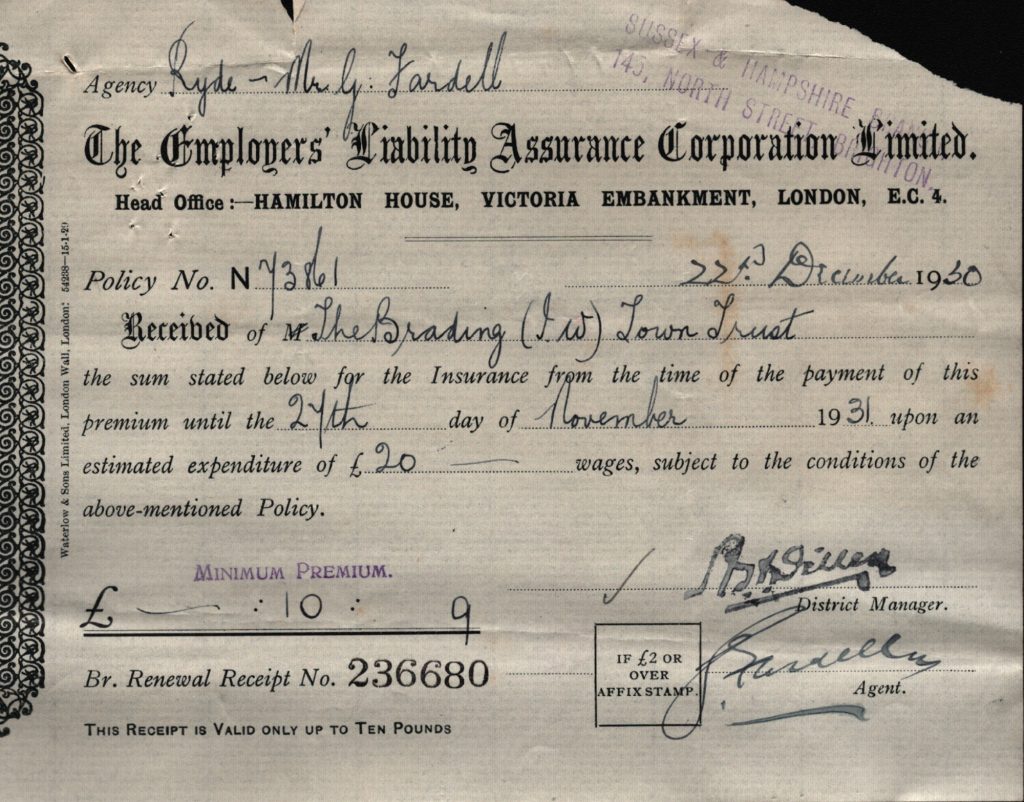 SUSSEX & HAMPSHIRE
145, NORTH STREET, BRIGHTON.
Agency Ryde - Mr. G. Fardell
The Employers' Liability Assurance Corporation Limited.
Head Office:—HAMILTON HOUSE, VICTORIA EMBANKMENT, LONDON, E.C. 4.
Policy No. N 73861 22nd December 1930
Received of M The Brading (I W) Town Trust
the sum stated below for the Insurance from the time of the payment of this
premium until the 27th day of November 1931. upon an
estimated expenditure of £ 20 — wages, subject to the conditions of the
above-mentioned Policy.
MINIMUM PREMIUM.
£ — : 10 : 9
District Manager.
Br. Renewal Receipt No. 236680
IF £2 OR
OVER
AFFIX STAMP.
Fardell
Agent.
THIS RECEIPT IS VALID ONLY UP TO TEN POUNDS
Waterlow & Sons Limited, London Wall, London: 54238—15-1-29